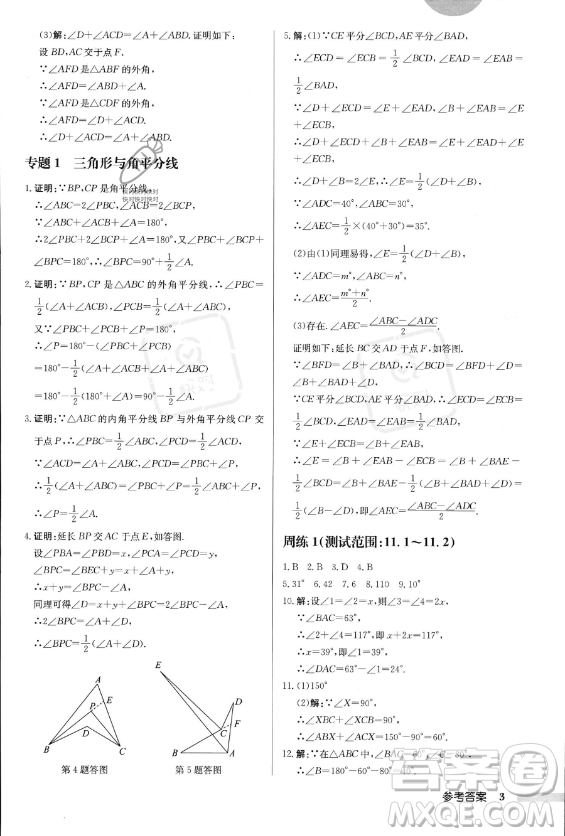 (3)解:∠D+∠ADC=∠A+∠ABD.证明如下:
设BD,AC交于点F.
∵∠AFD是△ABF的外角,
∴∠AFD=∠ABD+∠A.
∵∠AFD是△DFC的外角,
∴∠AFD=∠D+∠ADC.
∴∠D+∠ADC=∠A+∠ABD.
专题1 三角形与角平分线
1.证明:∵BP,CP是角平分线,
∴∠ABC=2∠PBC,∠ACB=2∠PCB.
∵∠ABC+∠ACB+∠A=180°,
∴2∠PBC+2∠PCB+∠A=180°.
∵∠PBC+∠PCB+∠BPC=180°,
∴2∠BPC=180°+∠A.∴∠BPC=90°+1/2∠A.
2.证明:∵BP,CP是△ABC的外角平分线,∴∠PBC=
1/2(∠A+∠ACB),∠PCB=1/2(∠A+∠ABC).
又∵∠BPC+∠PBC+∠PCB=180°,
∴∠BPC=180°-(∠PBC+∠PCB)
=180°-1/2(∠A+∠ACB+∠A+∠ABC)
=180°-1/2(180°+∠A)=90°-1/2∠A.
3.证明:∵△ABC的内角平分线BP与外角平分线CP交
于点P,∴∠PBC=1/2∠ABC,∠PCE=1/2(∠A+
∠ABC).∵∠PBC+∠P=∠PCE,
∴∠P=1/2∠A.
4.证明:延长BP交AC于点E,如答图.
设∠PBA=∠PBD=x,∠PCA=∠PCD=y,
∵∠BPC=∠BEC+∠PCA,∠BEC=∠A+∠PBA,
∴x+y+∠A=∠BPC.
同理可得∠BDC=x+y+∠BPC.
∴2∠BPC=∠BDC+∠A.
∴∠BPC=1/2(∠A+∠BDC).
A
E
P
D
B
C
D
F
E
C
B
A
第4题答图 第5题答图
5.解:(1)∵CE平分∠BCD,AE平分∠BAD,
∴∠ECD=∠ECB=1/2∠BCD,∠EAD=∠EAB=
1/2∠BAD.
∵∠D+∠ECD=∠E+∠EAD,∠B+∠EAB=
∠E+∠ECB,
∴∠D+∠ECD+∠B+∠EAB=∠E+∠EAD+
∠E+∠ECB.
∴∠D+∠B=2∠E.∴∠E=1/2(∠D+∠B).
∵∠ADC=40°,∠ABC=30°,
∴∠AEC=1/2×(40°+30°)=35°.
(2)由(1)同理易得,∠E=1/2(∠D+∠B).
∵∠ADC=m°,∠ABC=n°,
∴∠AEC=(m°+n°)/2.
(3)存在.∠AEC=(∠ABC-∠ADC)/2.
证明如下:延长BC交AD于点F,如答图.
∵∠BFD=∠B+∠BAD,∴∠BCD=∠BFD+∠D=
∠B+∠BAD+∠D.
∵CE平分∠BCD,AE平分∠BAD,
∴∠ECD=∠ECB=1/2∠BCD,∠EAD=∠EAB=
1/2∠BAD.∵∠E+∠ECB=∠B+∠EAB,
∴∠E=∠B+∠EAB-∠ECB=∠B+∠BAE-
1/2∠BCD=∠B+∠BAE-1/2(∠B+∠BAD+
∠D)=1/2(∠B-∠D),即∠AEC=(∠ABC-∠ADC)/2.
周练1(测试范围:11.1~11.2)
1.B 2.B 3.D 4.C
5.31° 6.42 7.6 8.110° 9.120°
10.解:设∠1=∠2=x,则∠3=∠4=2x,
∵∠BAC=63°,
∴∠2+∠4=117°,即x+2x=117°.
∴x=39°,即∠1=39°.
∴∠DAC=24°.
11.(1)150°
(2)解:∵∠X=90°,
∴∠XBC+∠XCB=90°.
∴∠ABX+∠ACX=150°-90°=60°.
12.解:∵在△ABC中,
参考答案 3
作业帮
MXQE.COM